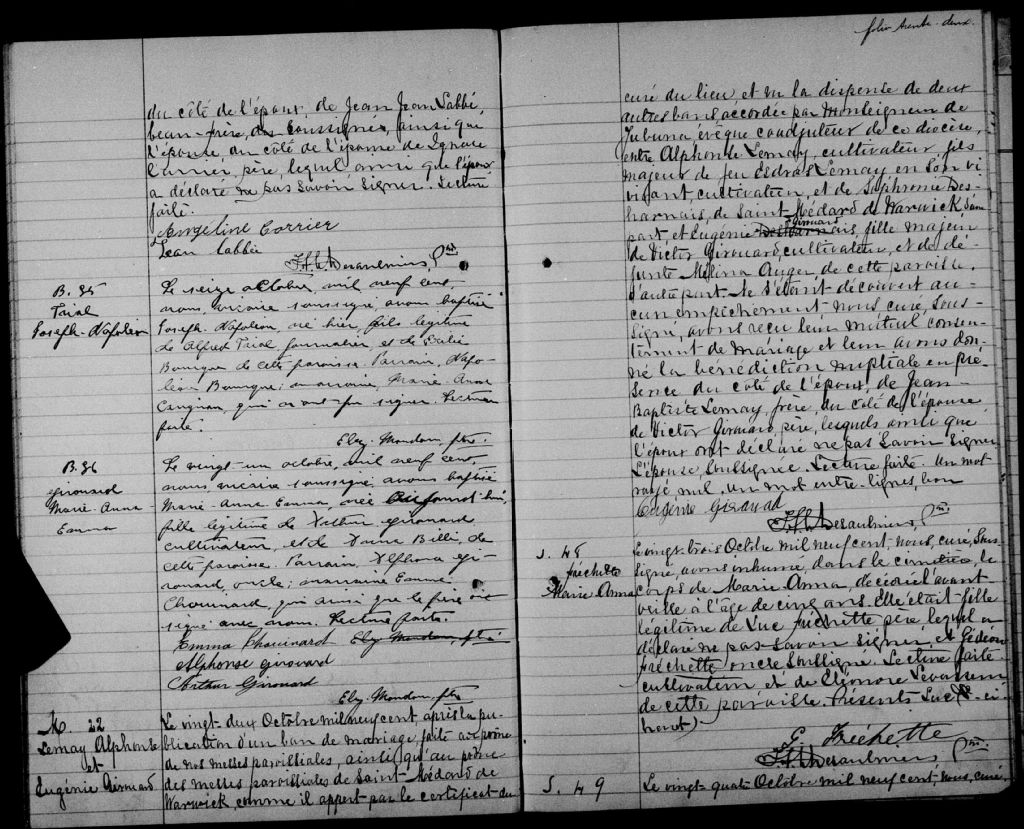 du côté de l'époux, de Jean Jean Labbé
beau-frère, des soussignés, ainsi que
l'épouse, du côté de l'épouse de Ignace
père, lequel ainsi que l'époux
a déclaré ne pas savoir signer. Lecture
faite.
Angeline Corrier
Jean Labbée
Desaulniers, Ptre
B. 35
Trial
Joseph-Napoleon
Le seize octobre, mil neuf cent,
nous, vicaire soussigné, avons baptisé
Joseph-Napoléon, né hier, fils légitime
de Alfred Trial journalier, et de
Bourque de cette paroisse. Parrain, Napo-
léon Bourque; marraine, Marie-Anne
Carignan, qui n'ont pu signer. Lecture
faite.
Elz. Mondou, ptre.
B. 36
Girouard
Marie-Anna-
Emma
Le vingt-un octobre, mil neuf cent,
nous, vicaire soussigné, avons baptisé
Marie-Anne Emma, née aujourd'hui,
fille légitime de Arthur Girouard,
cultivateur, et de de
cette paroisse. Parrain, Alphonse Gi-
rouard, oncle; marraine Emma
Chouinard, qui ainsi que le père ont
signé avec nous. Lecture faite.
Emma Chouinard Elz. Mondou, ptre
Alphonse Girouard
Arthur Girouard
Elz. Mondou, ptre
M. 22
Lemay Alphonse
et
Eugénie Girouard
Le vingt deux Octobre mil neuf cent, après la pu-
blication d'un ban de mariage, faite au prône
de nos messes paroissiales, ainsi qu'au prône
des messes paroissiales de Saint-Médard de
Warwick, comme il appert par le certificat du
folio trente-deux.
curé du lieu, et vu la dispense de deux
autres bans, accordée par Monseigneur de
évêque coadjuteur de ce diocèse,
entre Alphonse Lemay, cultivateur, fils
majeur de feu Esdras Lemay en son vi
vivant, cultivateur, et de Sophronie Des-
harnais, de Saint-Médard de Warwick, d'une
Girouard
part, et Eugénie Desharnais, fille majeure
de Victor Girouard, cultivateur, et de dé-
funte Mélina Auger de cette paroisse,
d'autre part. Ne s'étant découvert au-
cun empêchement, nous curé, sous-
signé, avons reçu leur mutuel consen-
tement de mariage et leur avons don-
né la bénédiction nuptiale en pré-
sence du côté de l'époux, de Jean-
Baptiste Lemay, frère, du côté de l'épouse,
de Victor Girouard père, lesquels ainsi que
l'époux ont déclaré ne pas savoir signer
L'épouse, soussignée. Lecture faite. Un mot
rayé nul. Un mot entre-lignes, bon
Eugénie Girouard
Desaulniers, Ptre
S. 48
Fréchette
Marie-Anna
Le vingt-trois Octobre mil neuf cent, nous, curé, sous-
signé, avons inhumé, dans le cimetière, le
corps de Marie-Anna, décédée l'avant
veille à l'âge de cinq ans. Elle était fille
légitime de Luc Fréchette père lequel a
déclaré ne pas savoir signer et Gédéon
Fréchette oncle soussigné. Lecture faite.
cultivateur et de Eléonore Levasseur
de cette paroisse. Présents Luc (&-ci-
haut)
G. Frechette
Desaulniers, Ptre
S. 49
Le vingt-quatre Octobre mil neuf cent, nous, curé,